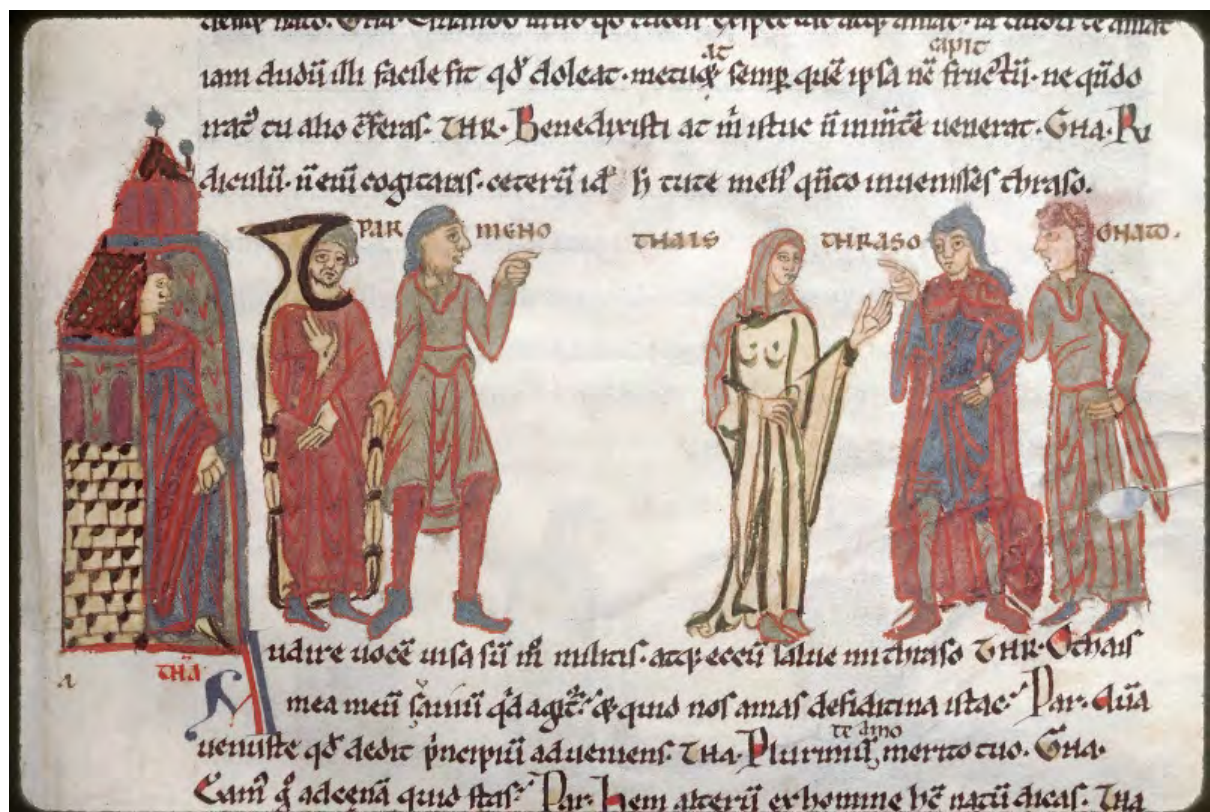 at capit
iam dudū illi facile fit qd̕ doleat. metuit semp̱ quē ipsa nc̄ fructū. ne qn̄do
irat᾽ tu alio c̄feras. THR. Benedixisti at m̄ istuc n̄ in mētē uenerat. GNA. Ri
diculū. n̄ enī cogitaras. ceterū id̕ h̄ tute meli᾽ qn̄to inuenisses thraso.
PAR MENO THAIS THRASO GNATO.
THA.
Audire uocē uisa sū m̊ militis. atq; eccū salue mi thraso THR. O thais
mea meū sauiū qd̕ agit᾽? & quid nos amas de fidicina istac? Par. Quā
te amo
uenuste qd̕ dedit p̄ncipiū adueniens. THA. Plurimū merito tuo. GNA.
Eam᾽ g̊ ad cenā quid stas? Par. hem alterū ex homine hc̄ natū dicas. THA